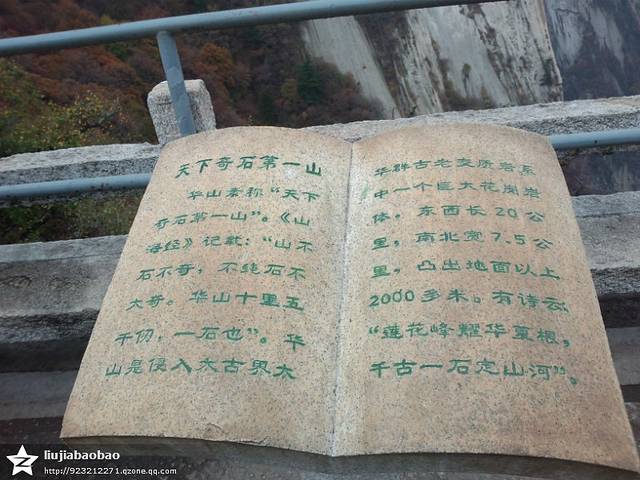 天下奇石第一山
华山素称“天下
奇石第一山”。《山
海经》记载：“山不
石不奇，不纯石不
大奇。华山十里五
千仞，一石也”。华
山是侵入太古界太
华群古老变质岩系
中一个巨大花岗岩
体，东西长20公
里，南北宽7.5公
里，凸出地面以上
2000多米。有诗云：
“莲花峰耀华夏根，
千古一石定山河”。
liujiabaobao
http://923212271.qzone.qq.com